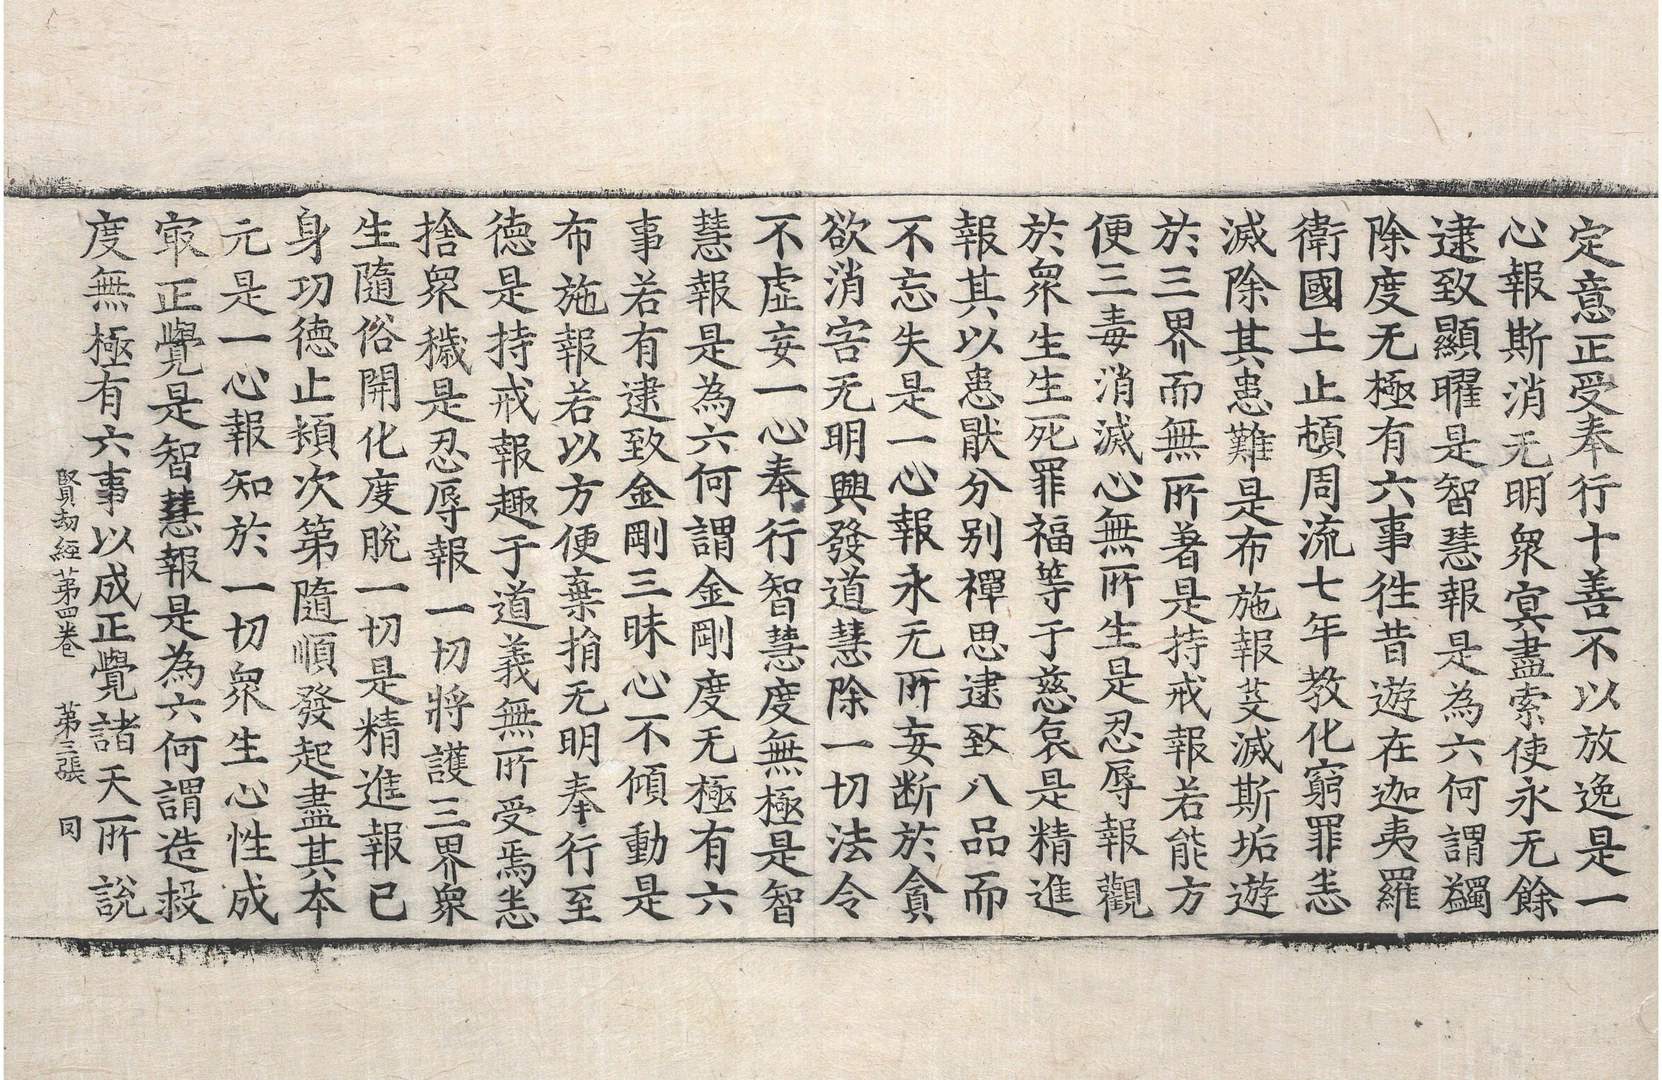 定意正受奉行十善不以放逸是一
心報斯消无明衆㝠盡索使永无餘
逮致顯曜是智慧報是為六何謂蠲
除度无極有六事徃昔遊在迦夷羅
衛國土止頓周流七年教化窮罪恙
滅除其患難是布施報芟滅斯垢遊
於三界而無所著是持戒報若能方
便三毒消滅心無所生是忍辱報觀
於衆生生死罪福等于慈哀是精進
報其以患猒分别禪思逮致八品而
不忘失是一心報永无所妄断於貪
欲消害无明興發道慧除一切法令
不虚妄一心奉行智慧度無極是智
慧報是為六何謂金剛度无極有六
事若有逮致金剛三昧心不傾動是
布施報若以方便棄捐无明奉行至
德是持戒報趣于道義無所受焉恙
捨衆穢是忍辱報一切將護三界衆
生隨俗開化度脱一切是精進報已
身功德止頪次第隨順發起盡其本
元是一心報知於一切衆生心性成
㝡正覺是智慧報是為六何謂造投
度無極有六事以成正覺諸天所說
賢劫經第四卷 第三張 同